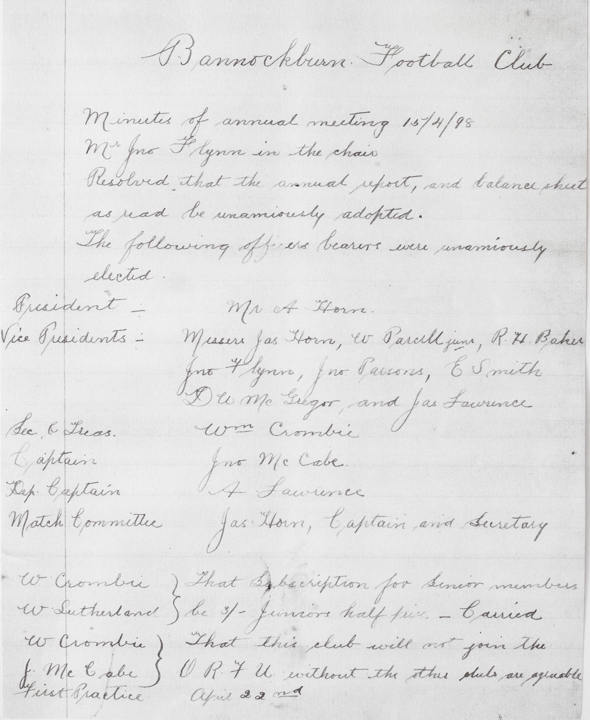 Bannockburn Football Club
Minutes of annual meeting 15/4/98
Mr Jno Flynn in the chair
Resolved, that the annual report, and balance sheet
as read be unamiously adopted.
The following officers bearers were unamiously
elected.
President – Mr A Horn.
Vice Presidents – Messers Jas Horn, W Parcell junr, R H Baker
Jno Flynn, Jno Parsons, E Smith
McGregor, and Jas Lawrence
Sec. & Treas. Wm Crombie
Captain Jno McCabe.
Dep. Captain A Lawrence
Match Committee Jas Horn, Captain and Secretary
W Crombie } That Subscription for Senior members
W Sutherland } be 3/- Juniors half price. – Carried
W Crombie } That this club will not join the
J. McCabe } O R F U without the other clubs are agreeable
First Practice April 22nd